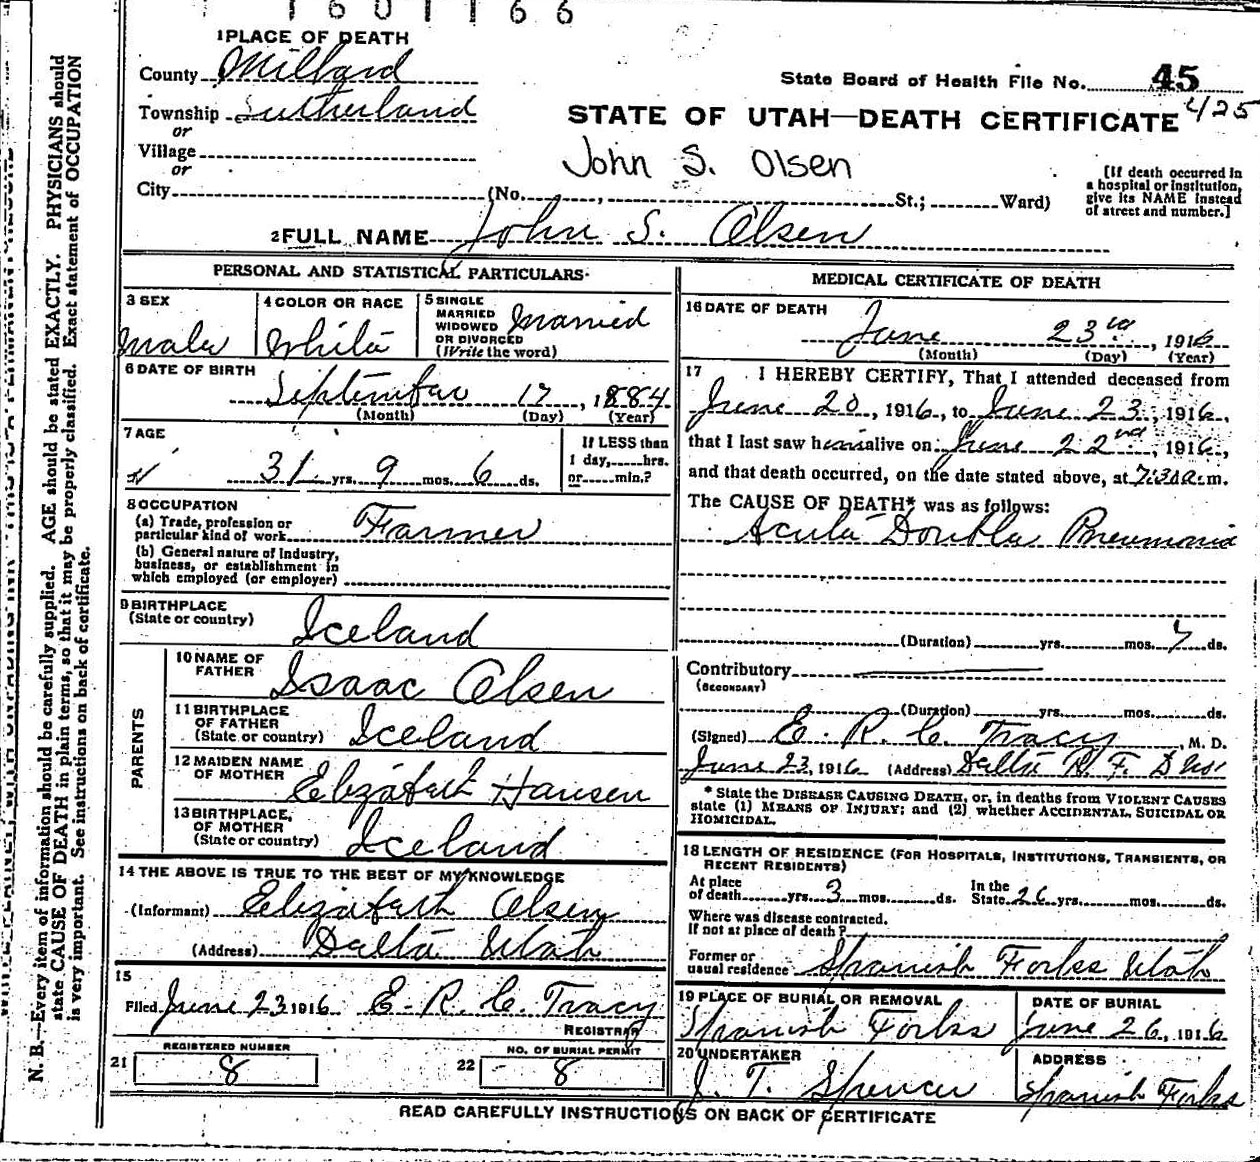 1601166
1 PLACE OF DEATH
County Millard
State Board of Health File No. 45
425
Township Sutherland
STATE OF UTAH—DEATH CERTIFICATE
or
Village
John S. Olsen
or
City (No. , St.; Ward)
[If death occurred in
a hospital or institution,
give its NAME instead
of street and number.]
2 FULL NAME John S. Olsen
PERSONAL AND STATISTICAL PARTICULARS
3 SEX
Male
4 COLOR OR RACE
White
5 SINGLE
MARRIED
WIDOWED
OR DIVORCED
(Write the word)
Married
6 DATE OF BIRTH
September 17, 1884
(Month) (Day) (Year)
7 AGE
31 yrs. 9 mos. 6 ds.
If LESS than
1 day, hrs.
or min.?
8 OCCUPATION
(a) Trade, profession or
particular kind of work Farmer
(b) General nature of industry,
business, or establishment in
which employed (or employer)
9 BIRTHPLACE
(State or country) Iceland
PARENTS
10 NAME OF
FATHER Isaac Olsen
11 BIRTHPLACE
OF FATHER
(State or country) Iceland
12 MAIDEN NAME
OF MOTHER Elizabeth Hansen
13 BIRTHPLACE
OF MOTHER
(State or country) Iceland
14 THE ABOVE IS TRUE TO THE BEST OF MY KNOWLEDGE
(Informant) Elizabeth Olsen
(Address) Delta Utah
15
Filed June 23 1916 E. R. C. Tracy
REGISTRAR
REGISTERED NUMBER
21 8
NO. OF BURIAL PERMIT
22 8
MEDICAL CERTIFICATE OF DEATH
16 DATE OF DEATH
June 23rd, 1916
(Month) (Day) (Year)
17 I HEREBY CERTIFY, That I attended deceased from
June 20, 1916, to June 23, 1916,
that I last saw him alive on June 22nd, 1916,
and that death occurred, on the date stated above, at 7:30 a.m.
The CAUSE OF DEATH* was as follows:
Acute Double Pneumonia
(Duration) yrs. mos. 7 ds.
Contributory
(SECONDARY)
(Duration) yrs. mos. ds.
(Signed) E. R. C. Tracy, M. D.
June 23, 1916 (Address) Delta R. F.
* State the DISEASE CAUSING DEATH, or, in deaths from VIOLENT CAUSES
state (1) MEANS OF INJURY; and (2) whether ACCIDENTAL, SUICIDAL OR
HOMICIDAL.
18 LENGTH OF RESIDENCE (FOR HOSPITALS, INSTITUTIONS, TRANSIENTS, OR
RECENT RESIDENTS)
At place
of death yrs. 3 mos. ds.
In the
State 26 yrs. mos. ds.
Where was disease contracted.
If not at place of death?
Former or
usual residence Spanish Forks Utah
19 PLACE OF BURIAL OR REMOVAL
Spanish Forks
DATE OF BURIAL
June 26, 1916
20 UNDERTAKER
J. T. Spencer
ADDRESS
Spanish Forks
READ CAREFULLY INSTRUCTIONS ON BACK OF CERTIFICATE
N. B.—Every item of information should be carefully supplied. AGE should be stated EXACTLY. PHYSICIANS should
state CAUSE OF DEATH in plain terms, so that it may be properly classified. Exact statement of OCCUPATION
is very important. See instructions on back of certificate.